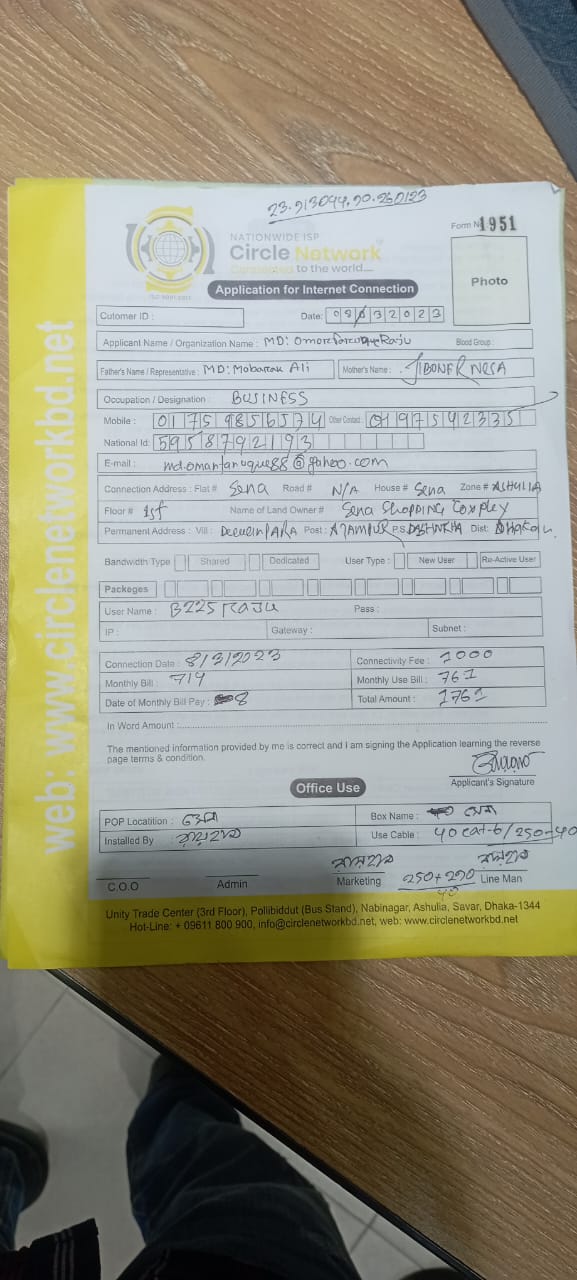 23.913044,90.260123
Form N 1951
NATIONWIDE ISP
Circle Network
Connected to the world....
ISO 9001:2015
Photo
Application for Internet Connection
Cutomer ID :
Date: 08032023
Applicant Name / Organization Name : MD: Omar faruque Raju Blood Group :
Father's Name / Representative : MD: Mobarak Ali Mother's Name : JIBONER NESA
Occupation / Designation : BUSINESS
Mobile : 01759856574 Other Contact : 0197542335
National Id: 5958792193
E-mail : md.omarfaruque88@yahoo.com
Connection Address : Flat # Sena Road # N/A House # Sena Zone # ASHULIA
Floor # 1st Name of Land Owner # Sena Shopping Complex
Permanent Address : Vill : Post : AJAMPUR P.S DASHINKHA Dist: Dhaka
Bandwidth Type Shared Dedicated User Type : New User Re-Active User
Packeges
User Name : B225RAJU Pass :
IP : Gateway : Subnet :
Connection Date : 8/3/2023 Connectivity Fee : 1000
Monthly Bill : 714 Monthly Use Bill : 761
Date of Monthly Bill Pay : 8 Total Amount : 1761
In Word Amount :
The mentioned information provided by me is correct and I am signing the Application learning the reverse
page terms & condition.
Applicant's Signature
Office Use
POP Locatition : Box Name : সেনা
Installed By : Use Cable : 40 cat-6/250-40
C.O.O Admin Marketing 250+290 Line Man
40
Unity Trade Center (3rd Floor), Pollibiddut (Bus Stand), Nabinagar, Ashulia, Savar, Dhaka-1344
Hot-Line: + 09611 800 900, info@circlenetworkbd.net, web: www.circlenetworkbd.net
web: www.circlenetworkbd.net